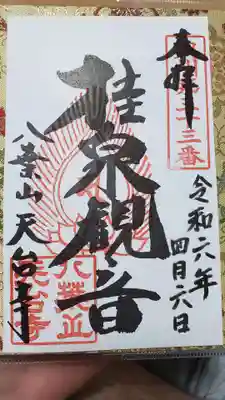 奉拝
三十三番
令和六年
四月六日
桂泉観音
八葉山天台寺
八葉山
天台寺